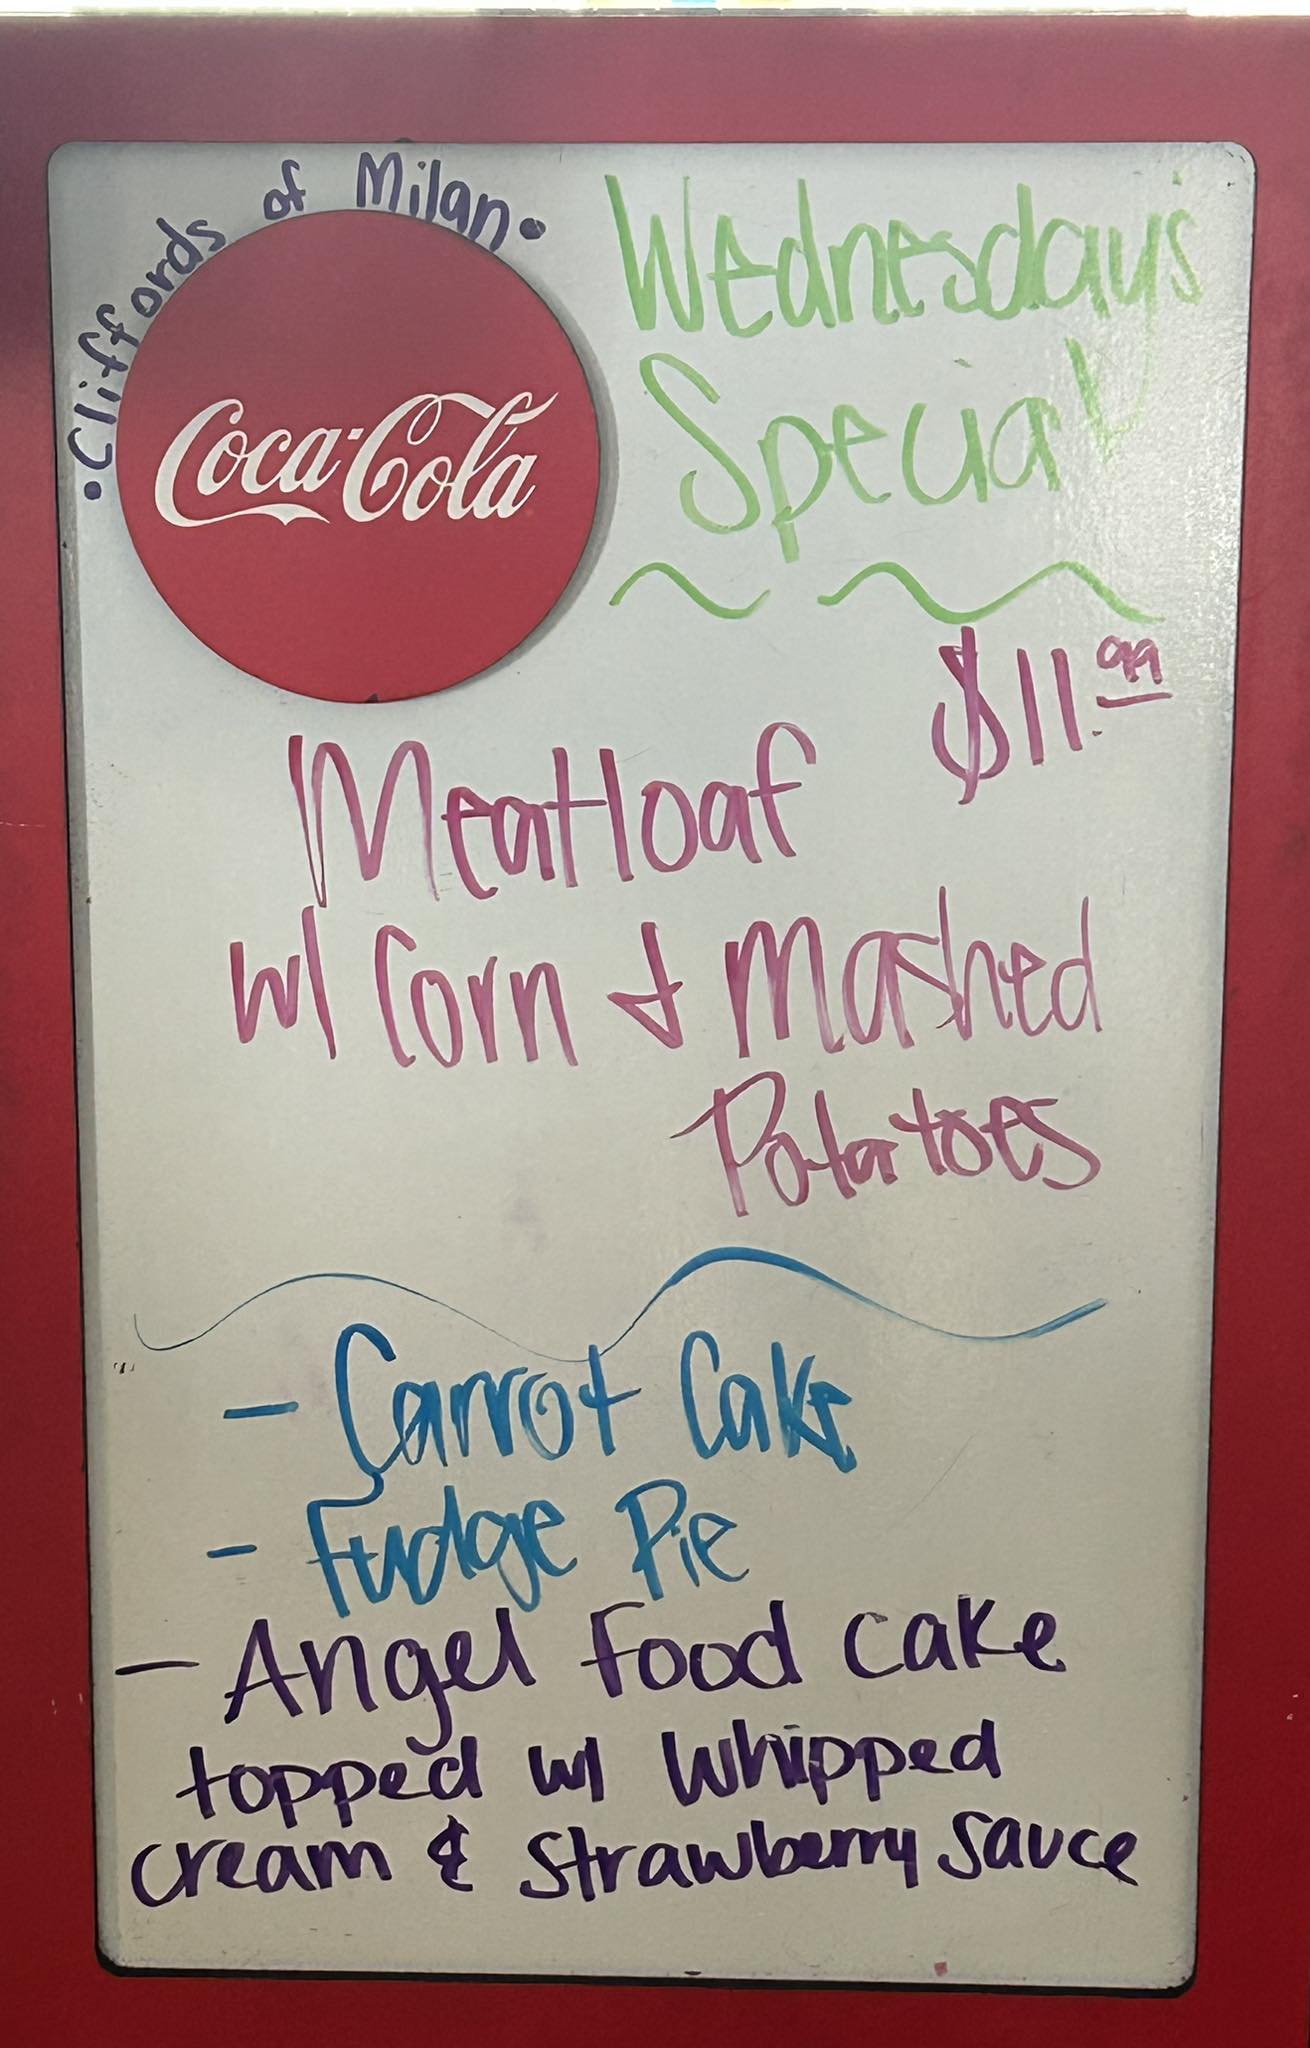 •Cliffords of Milan•
Coca-Cola
Wednesday's
Special
$11.99
Meatloaf
w/ Corn & Mashed
Potatoes
- Carrot Cake
- Fudge Pie
- Angel Food cake
topped w/ whipped
cream & strawberry sauce